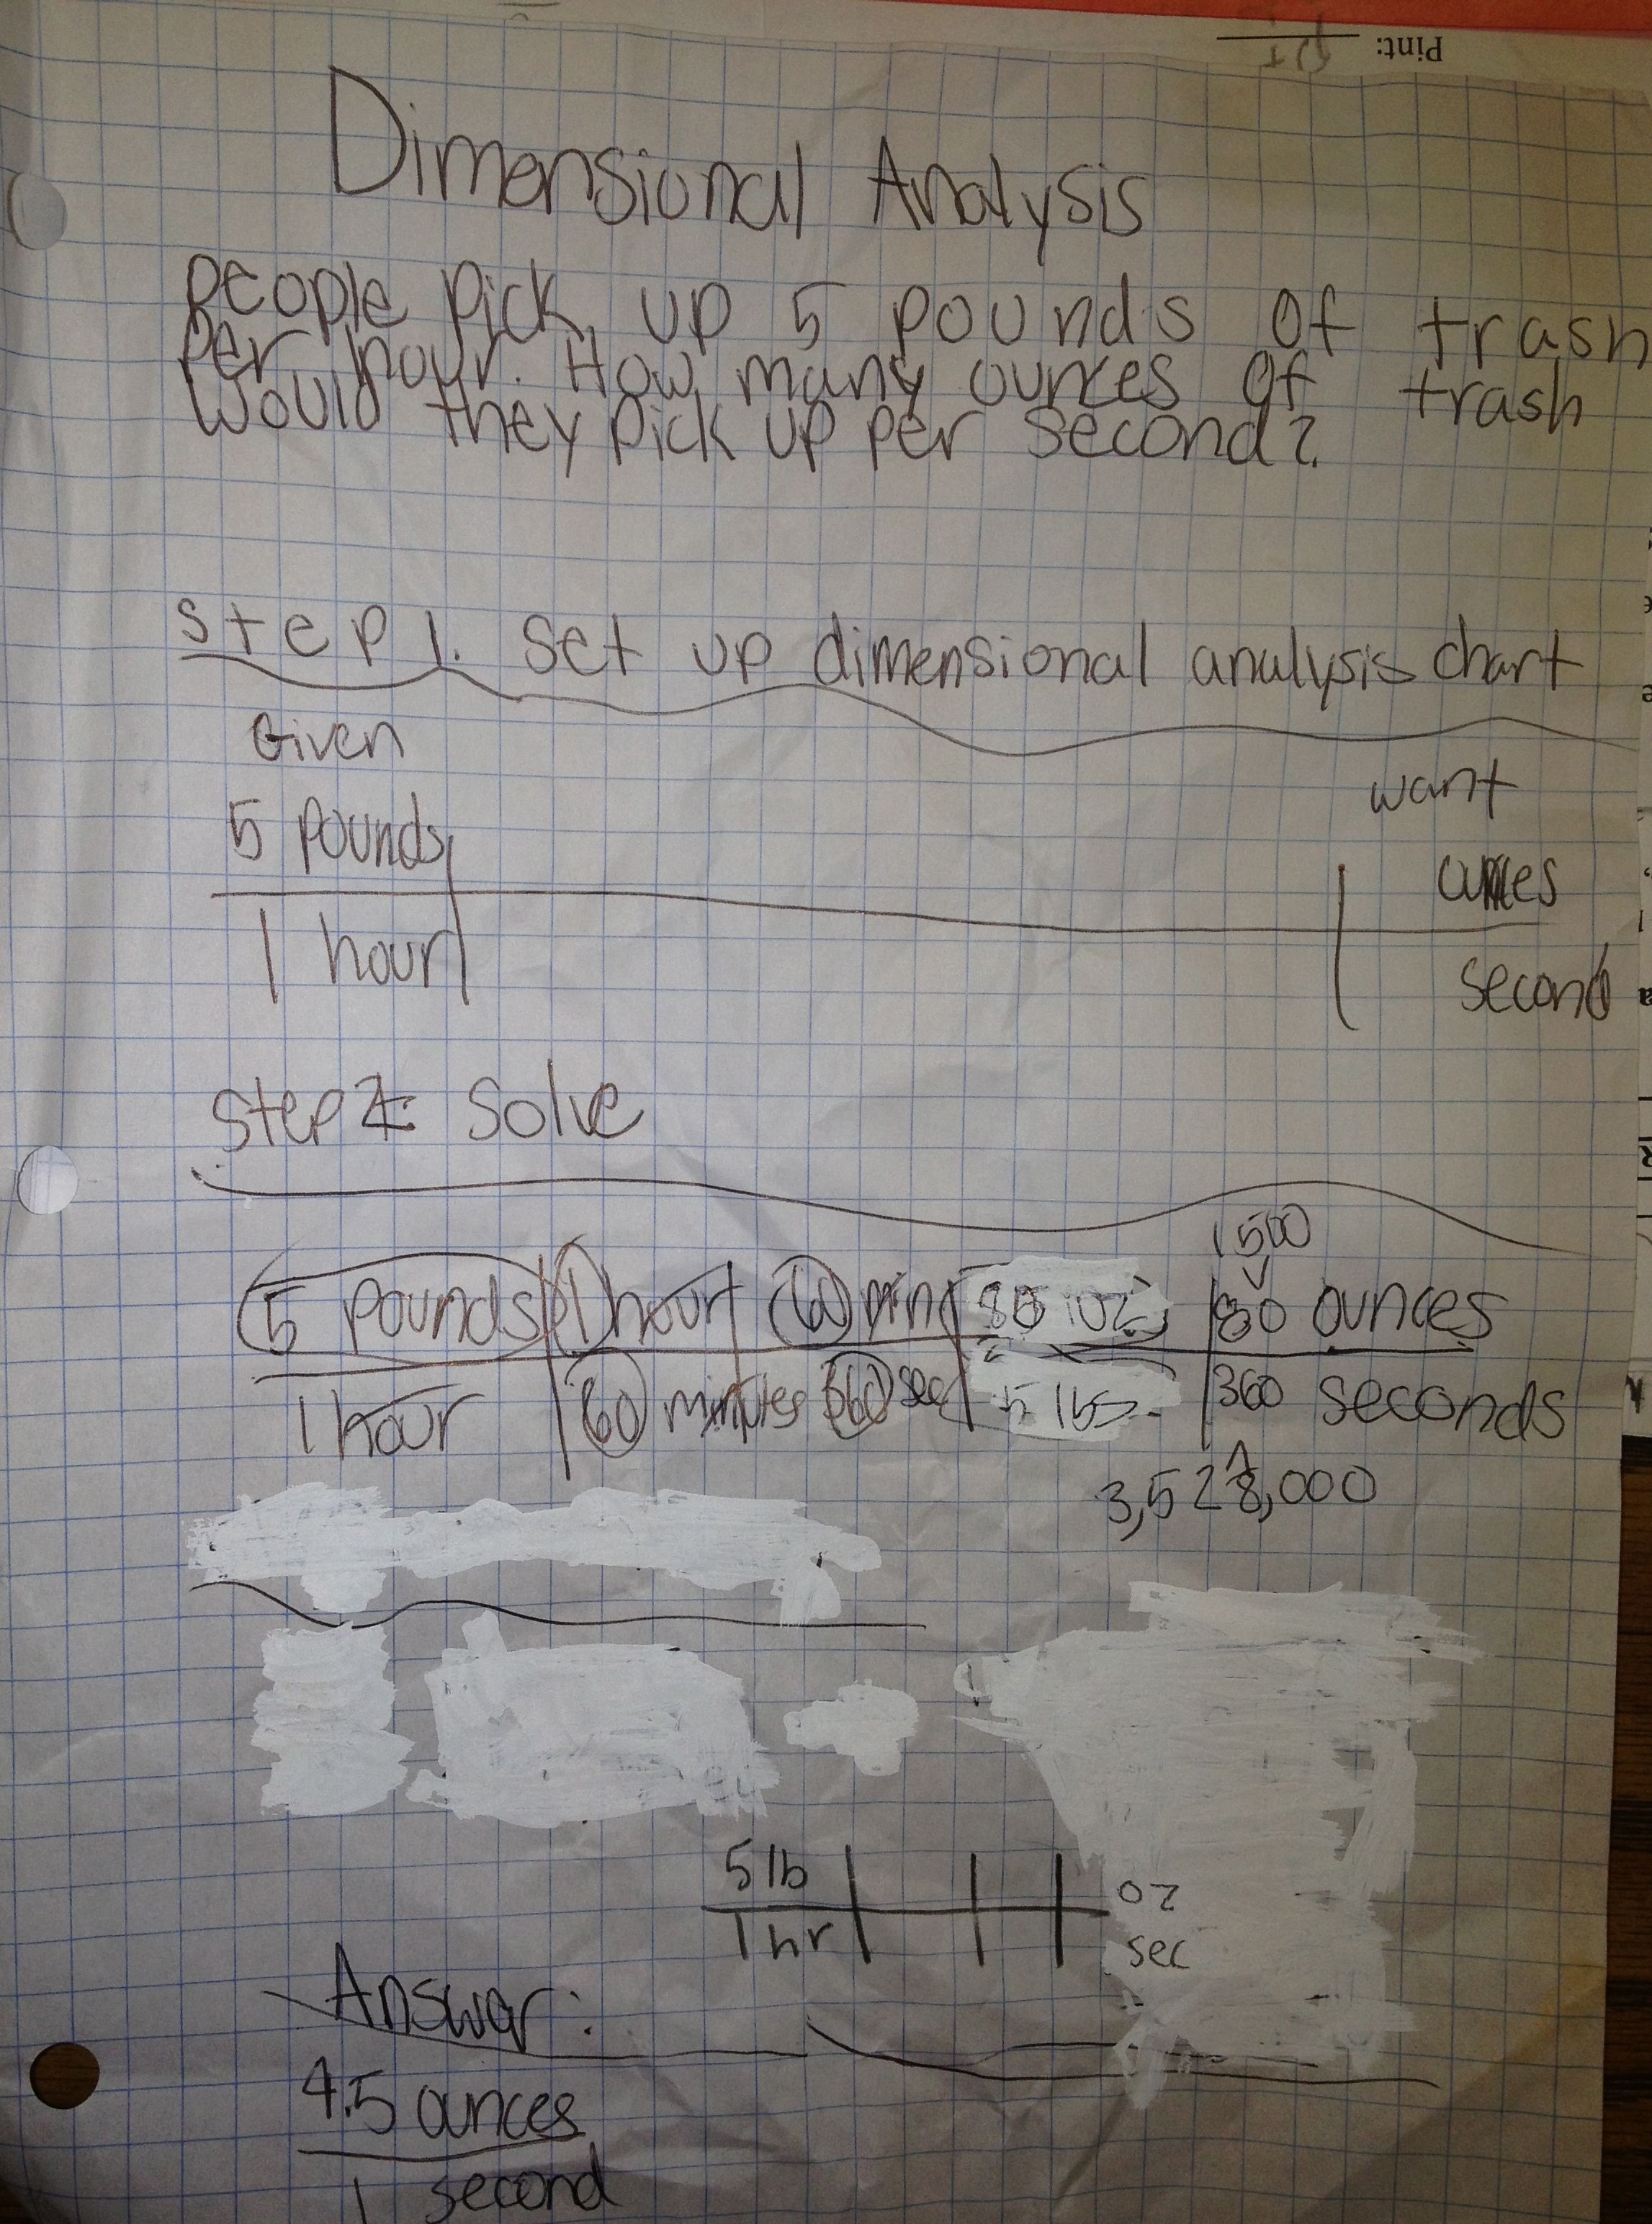 Pint: pt
Dimensional Analysis
People pick up 5 pounds of trash
per hour. How many ounces of trash
would they pick up per second?
Step 1. Set up dimensional analysis chart
Given
want
5 pounds
ounces
1 hour
second
Step 2: Solve
1500
5 pounds 1 hour 60 min 80 oz 80 ounces
1 hour 60 minutes 360 sec 5 lbs 360 seconds
3,528,000
5 lb
oz
1 hr
sec
Answer:
4.5 ounces
1 second